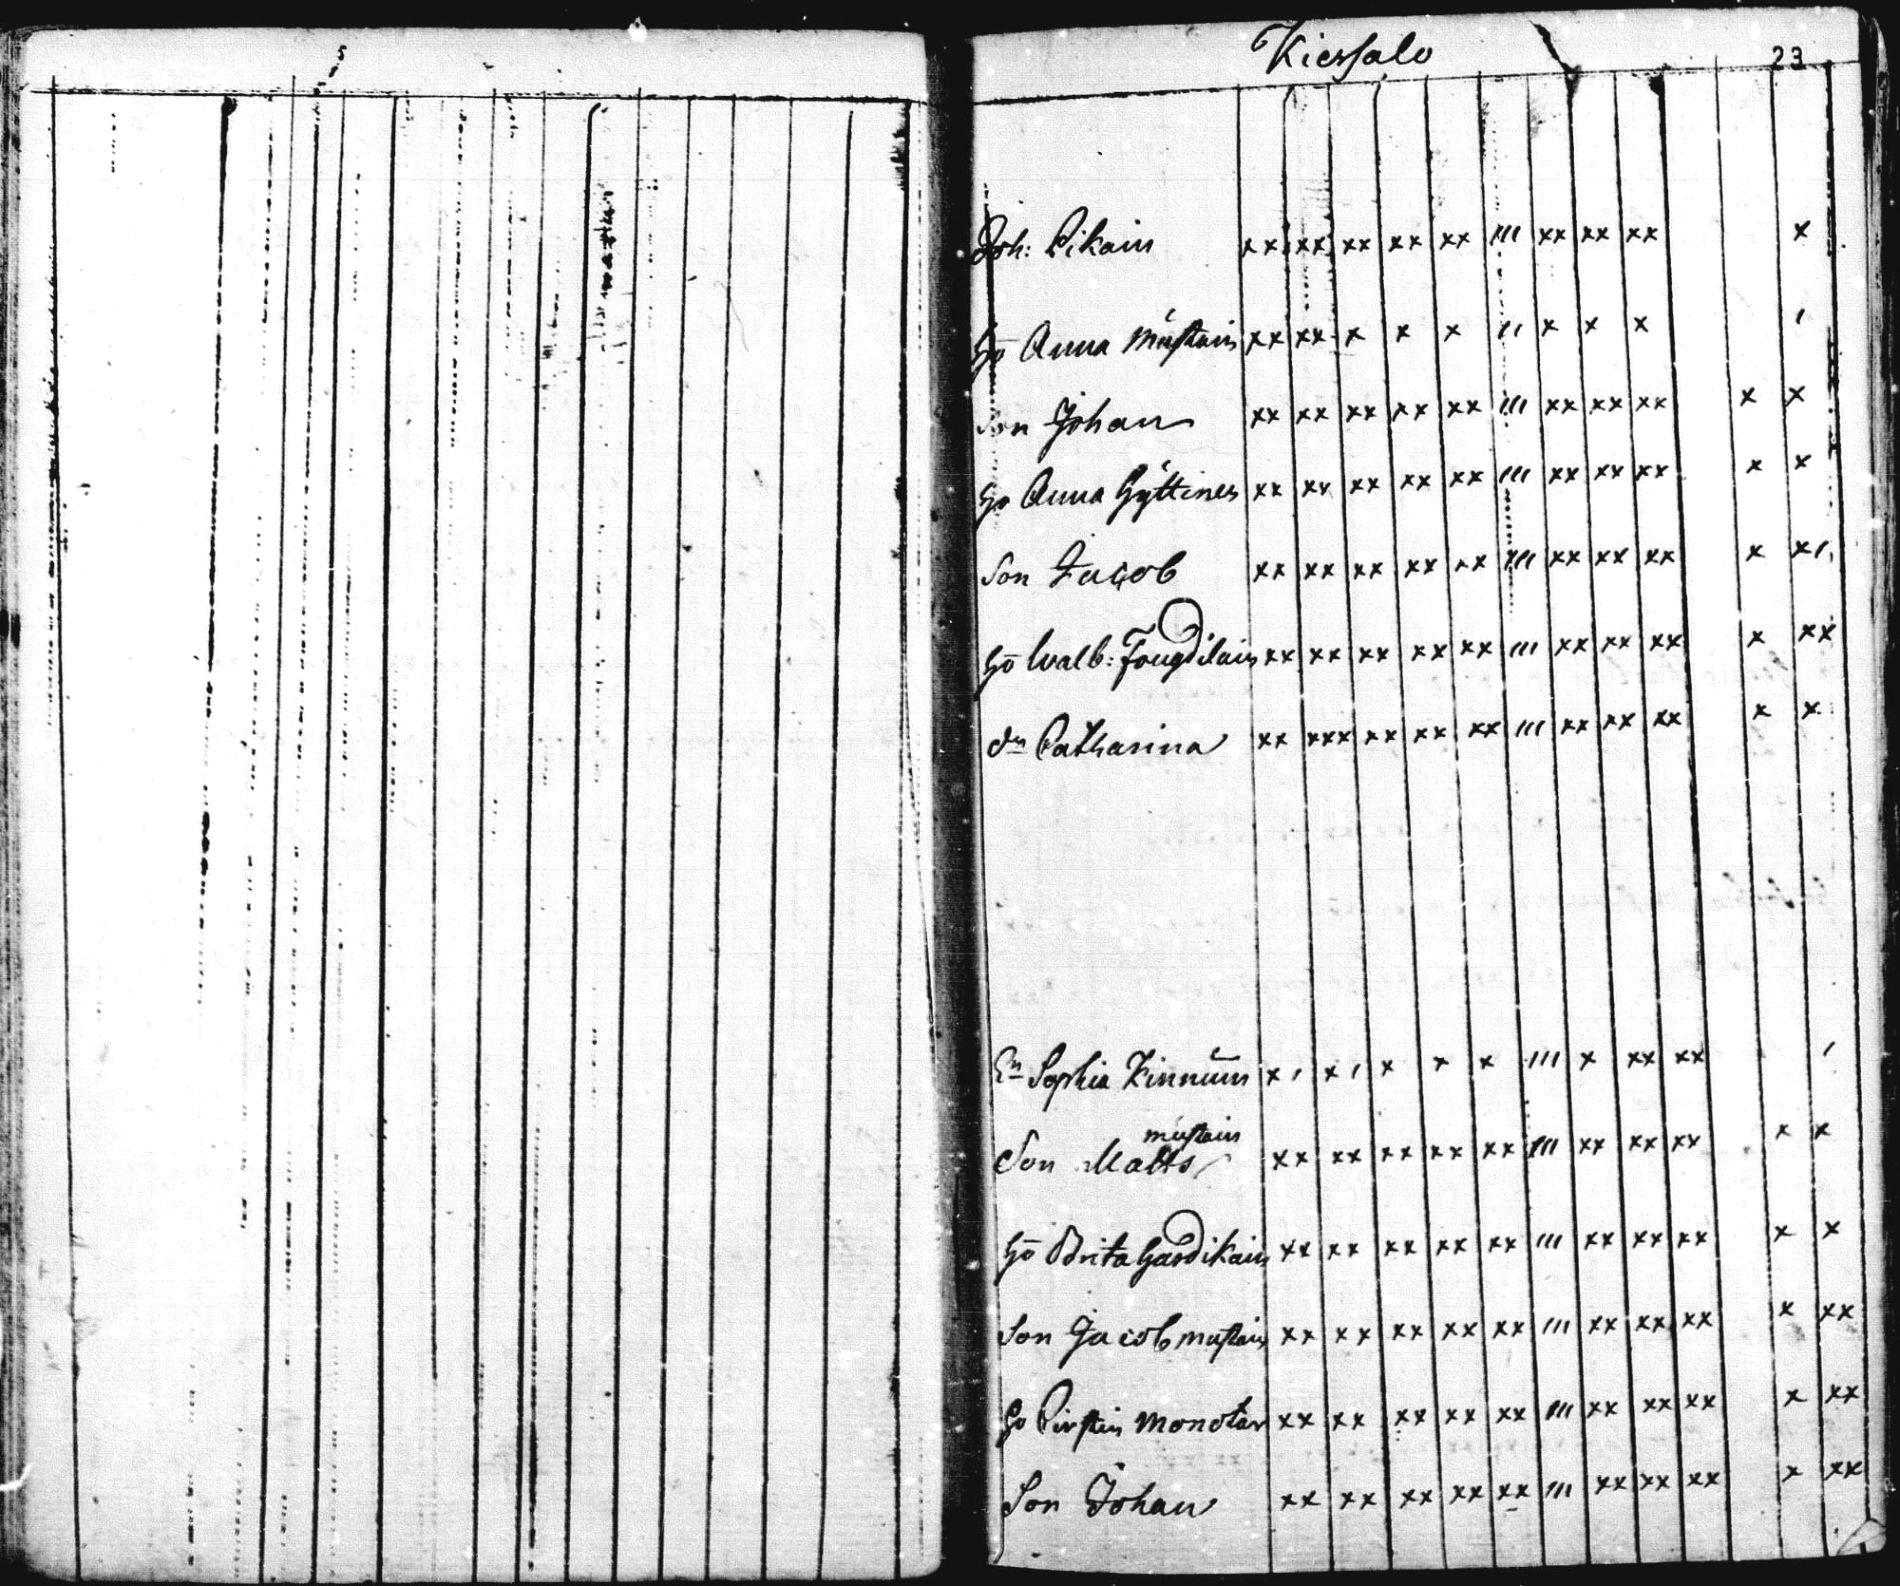 Kiersalo 23
Joh: Pikain xx xx xx xx xx /// xx xx xx x
Ho Anna Mustain xx xx x x x // x x x /
Son Johan xx xx xx xx xx /// xx xx xx x x
Ho Anna Hyttinen xx xx xx xx xx /// xx xx xx x x
Son Jacob xx xx xx xx xx /// xx xx xx x x/
Ho Walb: Fougdilain xx xx xx xx xx /// xx xx xx x xx
dr Catharina xx xxx xx xx xx /// xx xx xx x x
En Sophia Kinnuin x/ x/ x x x /// x xx xx /
mustain
Son Matts xx xx xx xx xx /// xx xx xx x x
Ho Brita Hardikain xx xx xx xx xx /// xx xx xx x x
Son Jacob mustain xx xx xx xx xx /// xx xx xx x xx
Ho Kirstin Monotar xx xx xx xx xx /// xx xx xx x xx
Son Johan xx xx xx xx xx /// xx xx xx x xx